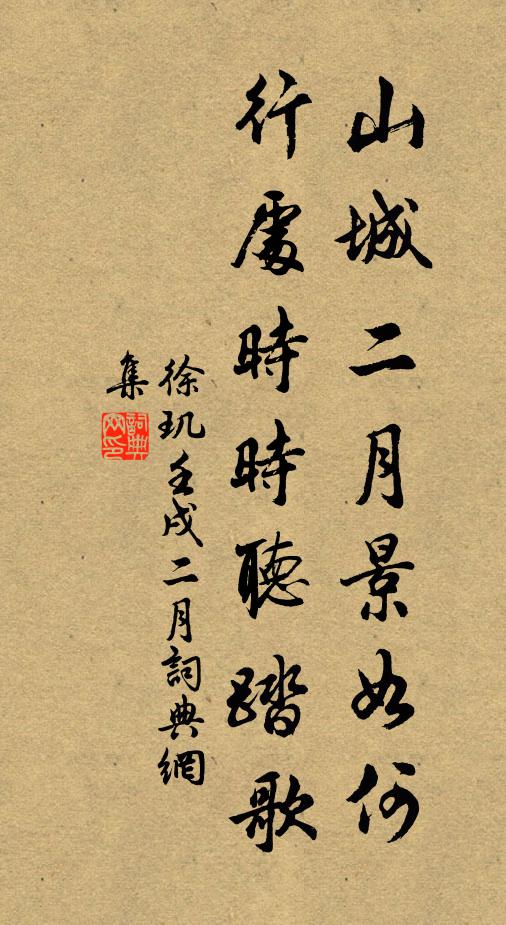 山城二月景如何
行處時時聽踏歌
徐玑壬戌二月詞典網
集
詞典
网印